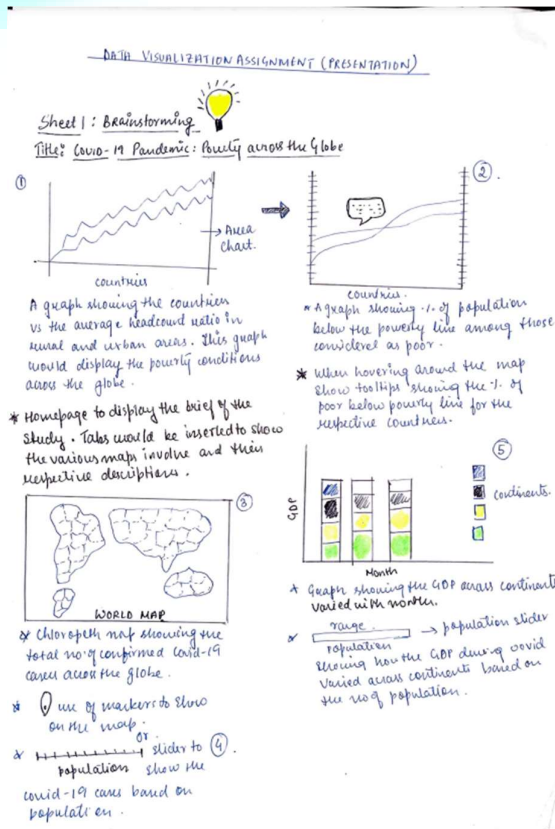 DATA VISUALIZATION ASSIGNMENT (PRESENTATION)
Sheet 1: Brainstorming
Title: Covid-19 Pandemic: Poverty across the Globe
①
→ Area
Chart.
countries
A graph showing the countries
vs the average headcount ratio in
rural and urban areas. This graph
would display the poverty conditions
across the globe.
* Homepage to display the brief of the
study. Tabs would be inserted to show
the various maps involve and their
respective descriptions.
③
WORLD MAP
* Chloropeth map showing the
total no. of confirmed Covid-19
cases across the globe.
* use of markers to show
on the map.
or
* slider to ④.
population show the
covid-19 cases based on
population.
②
countries.
* A graph showing % of population
below the poverty line among those
considered as poor.
* When hovering around the map
show tooltips showing the % of
poor below poverty line for the
respective countries.
⑤
GDP
continents.
Month
* Graph showing the GDP across continents
varied with month.
* range → population slider
population
showing how the GDP during covid
varied across continents based on
the no. of population.